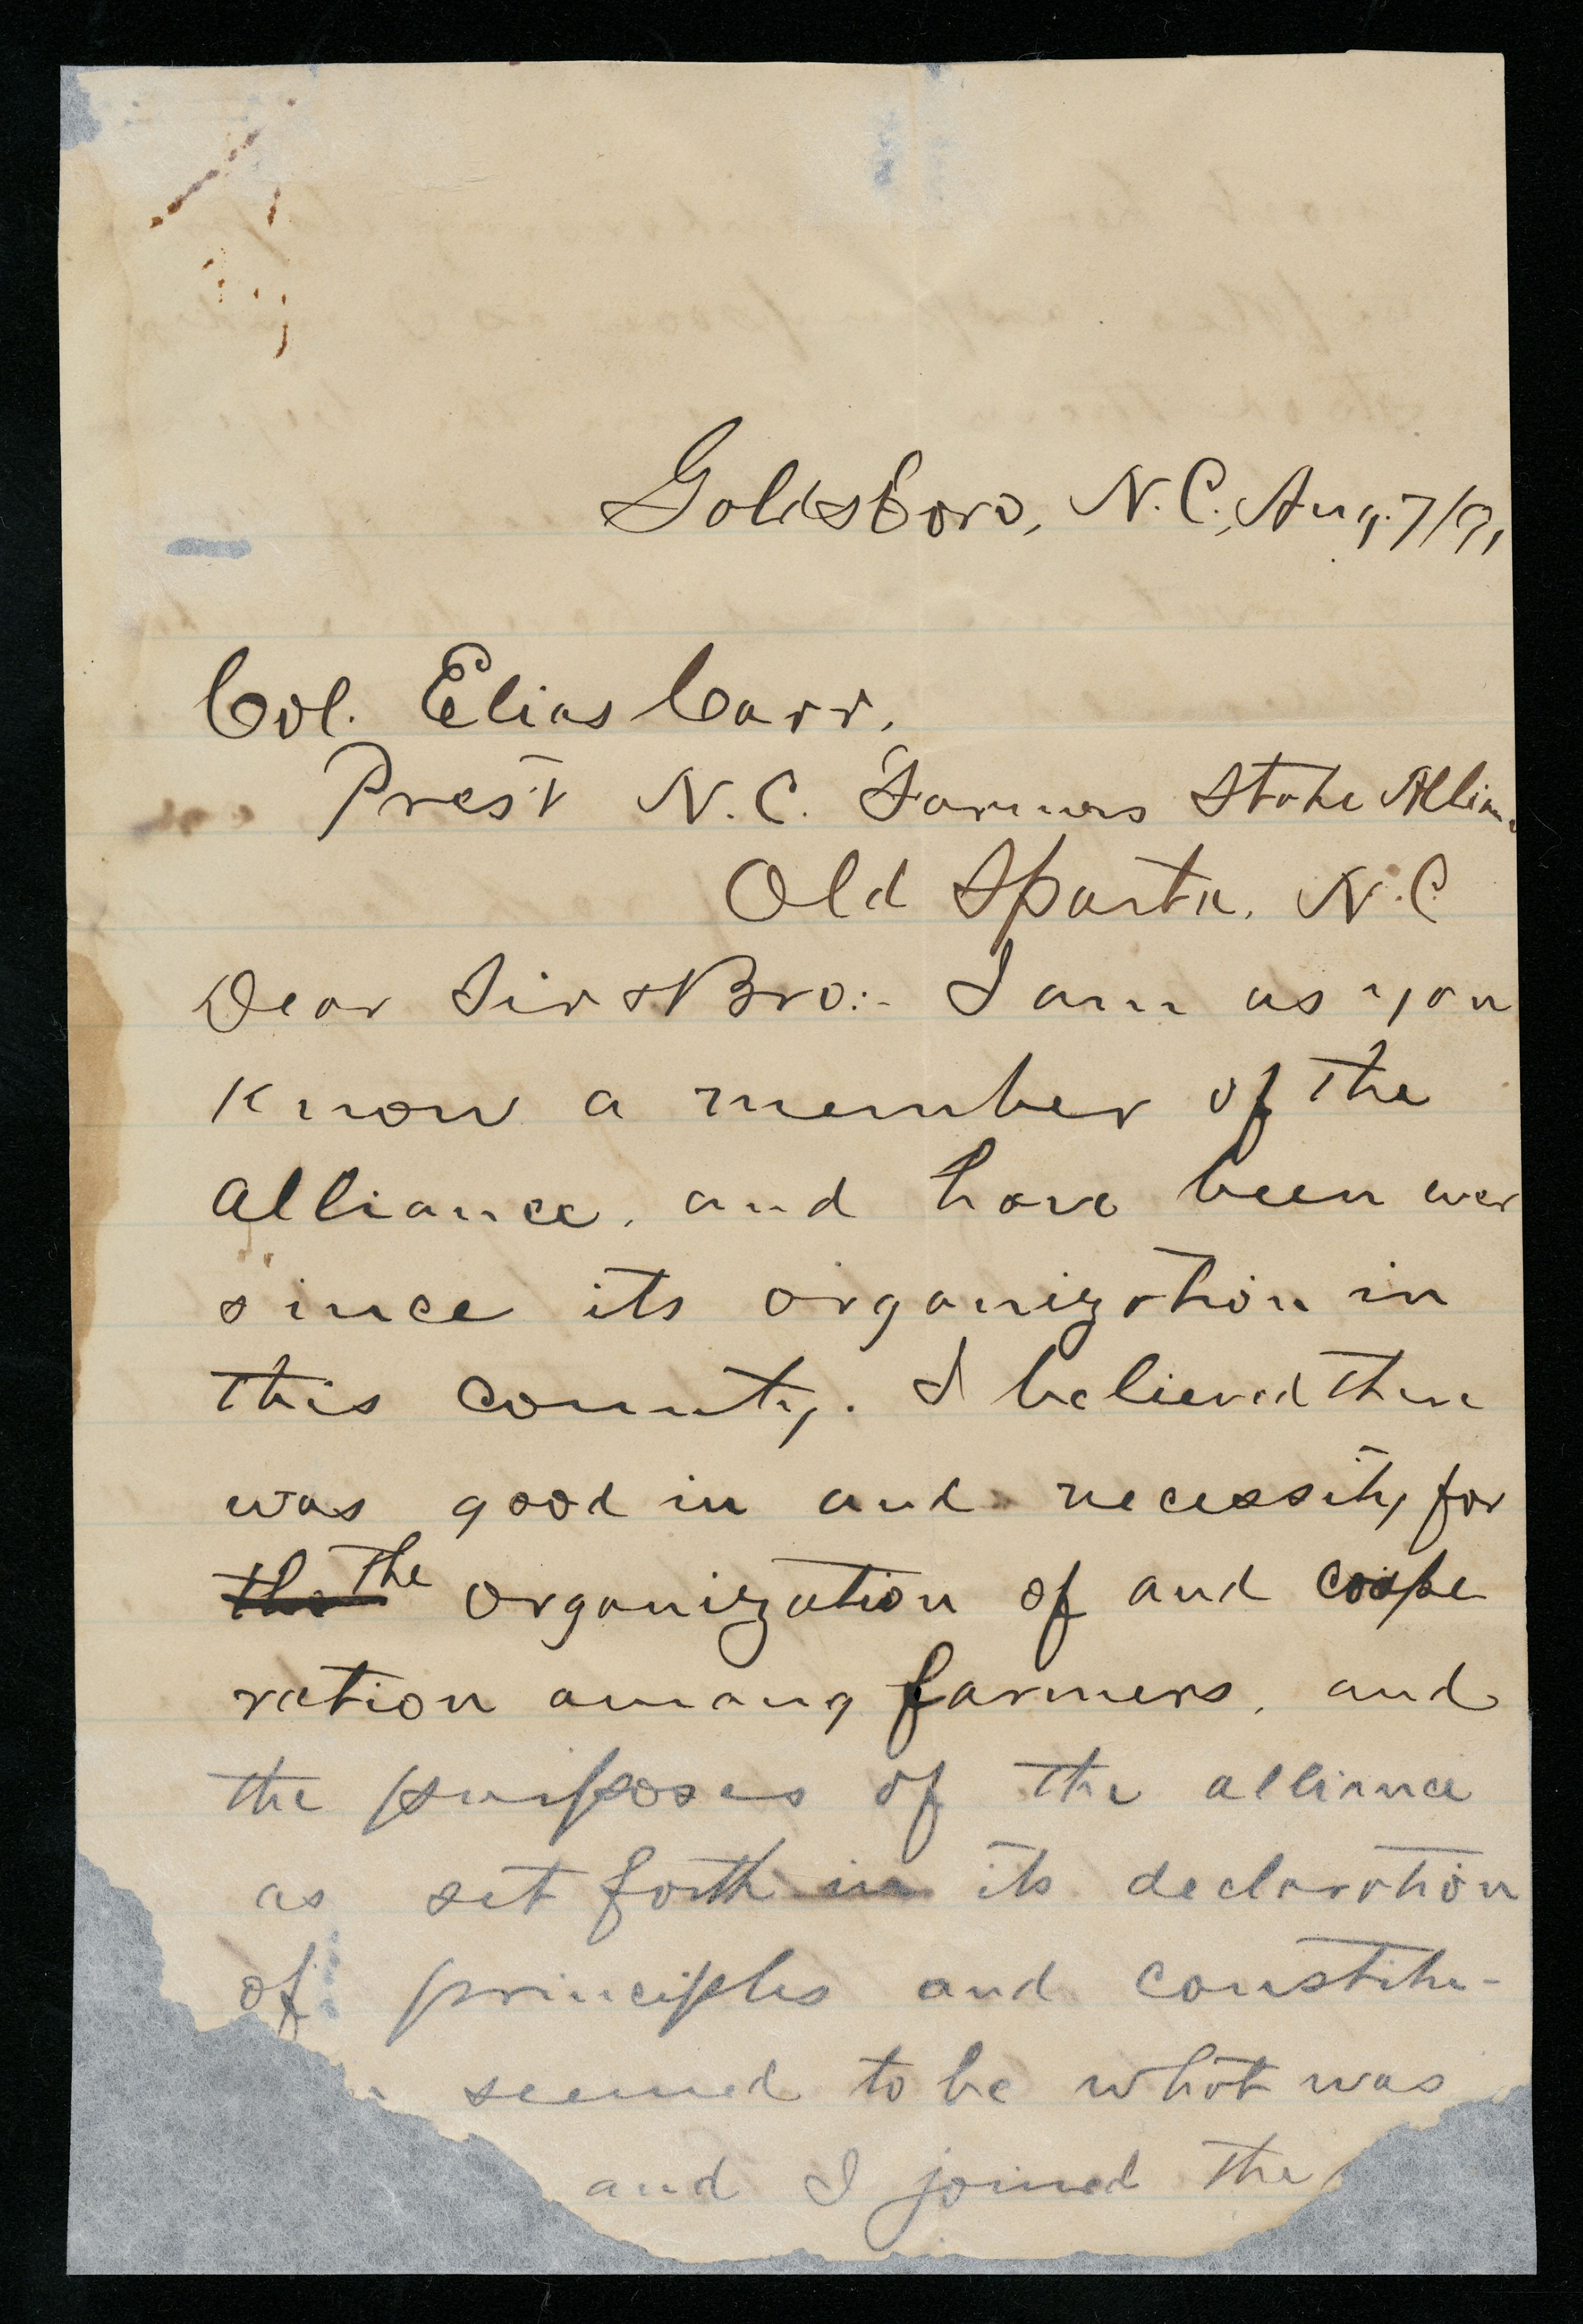 Goldsboro, N.C., Aug. 7/91
Col. Elias Carr,
Prest N.C. Farmers State Allian
Old Sparta, N.C.
Dear Sir & Bro:- I am as you
know a member of the
alliance, and have been ever
since its organization in
this county. I believed there
was good in and necessity for
the the organization of and coope
ration among farmers, and
the purposes of the alliance
as set forth in its declaration
of principles and constitu-
seemed to be what was
and I joined the